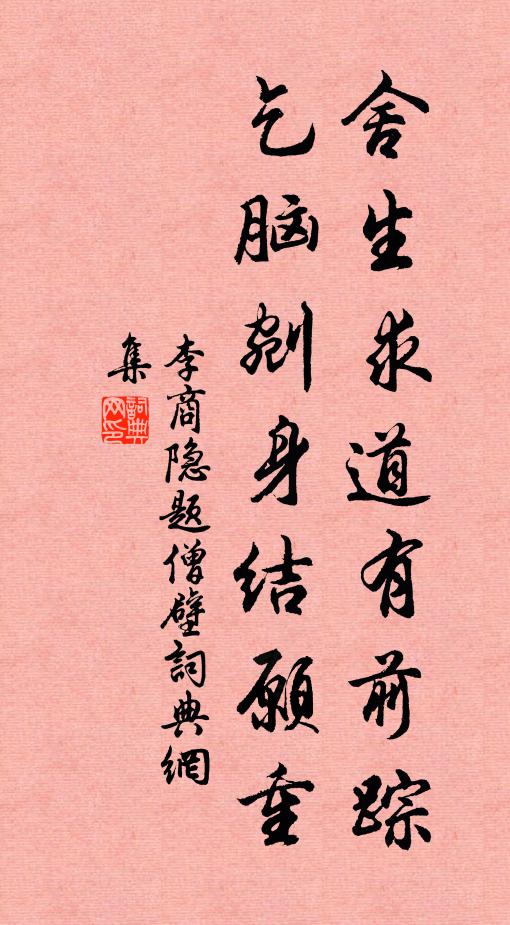 舍生求道有前踪
乞脑剜身结愿重
李商隐题僧壁詞典網
集
詞典网印